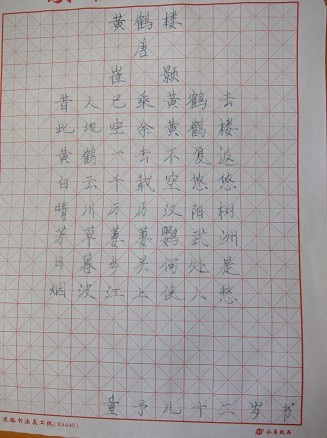 黄鹤楼
唐
崔颢
昔人已乘黄鹤去
此地空余黄鹤楼
黄鹤一去不复返
白云千载空悠悠
晴川历历汉阳树
芳草萋萋鹦武洲
日暮乡关何处是
烟波江上使人愁
童予儿十二岁书